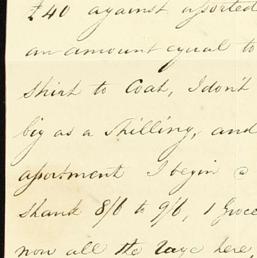 £40 against assorted
an amount equal to
Skirt to Coat, I don't
big as a shilling, and
apartment I begin a
Shank 8/6 to 9/6, 1 Groce
now all the rage here,